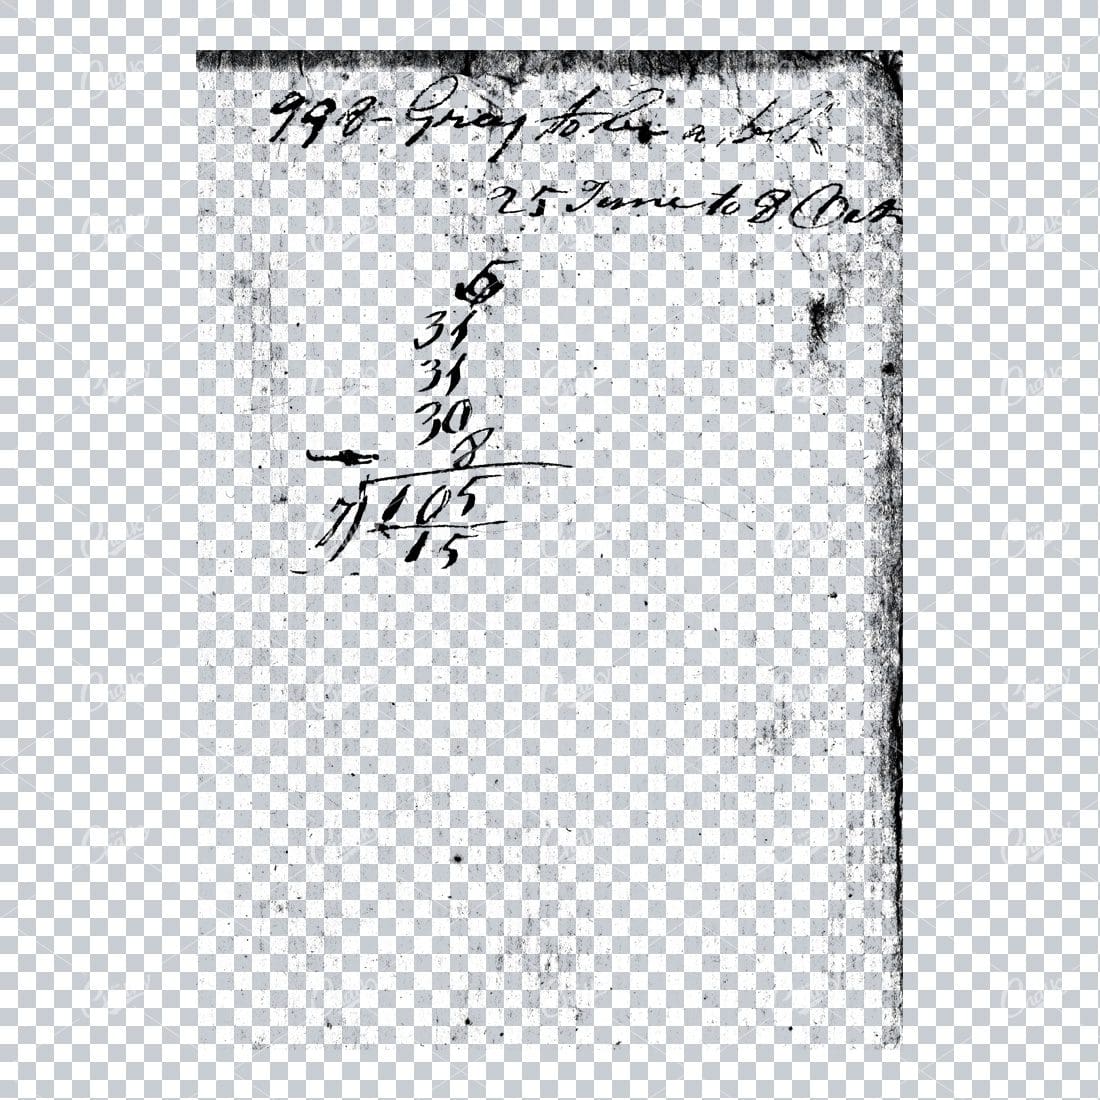 998 - Gray to be a
25 June to 8 Oct
5
31
31
30
8
7) 105
15